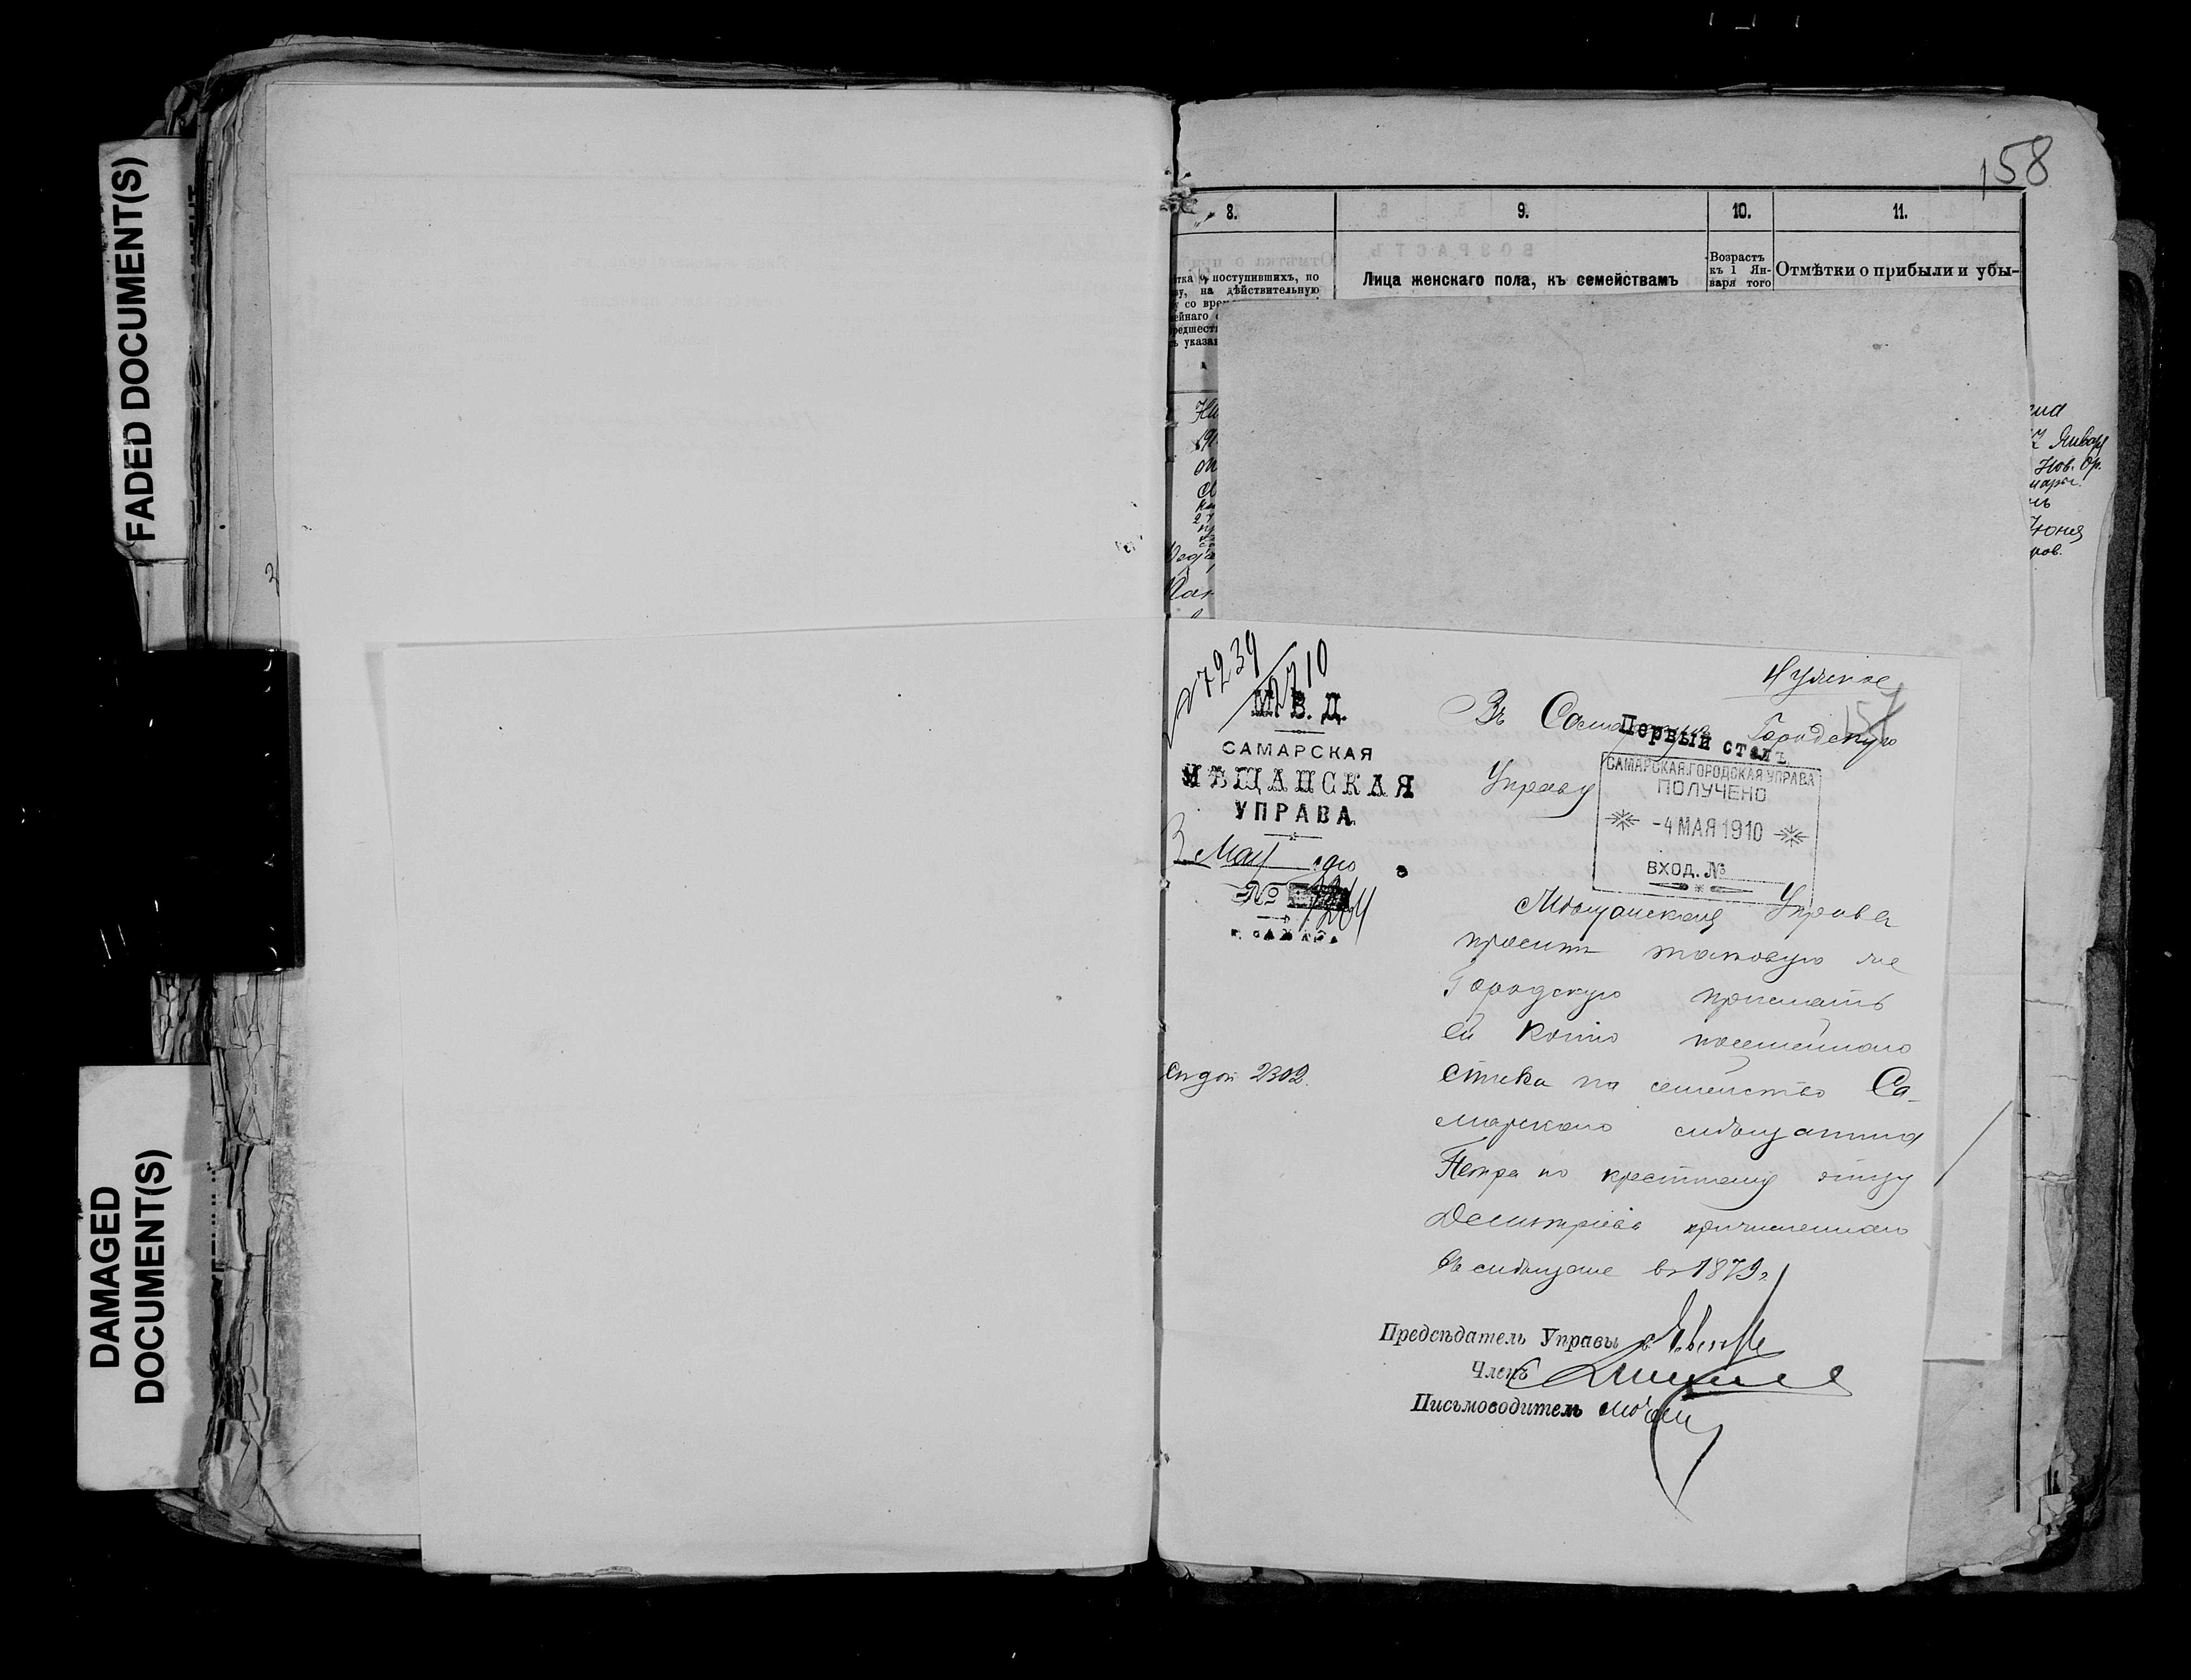 FADED DOCUMENT(S)
DAMAGED
DOCUMENT(S)
158
8.
9.
10.
11.
поступившихъ, по
на дѣйствительную
со
указан
Лица женскаго пола, къ семействамъ
Возрастъ
къ 1 Ян-
варя того
Отмѣтки о прибыли и убы-
Январ
Нов.
Іюня
7239
М. В. Д.
САМАРСКАЯ
МѢЩАНСКАЯ
УПРАВА
3 Мая 1910
№ 1264
г. САМАРА
Въ Самарскую Городскую
Управу
Первый столъ
САМАРСКАЯ ГОРОДСКАЯ УПРАВА
ПОЛУЧЕНО
-4 МАЯ 1910
ВХОД. №
Мѣщанская Управа
проситъ таковую же
Городскую прислать
ей копію посемейнаго
списка на семейство Са-
2302.
марскаго мѣщанина
Петра по крестному отцу
Дмитріева причисленнаго
въ мѣщане въ 1879 г.
Предсѣдатель Управы
Членъ
Письмоводитель